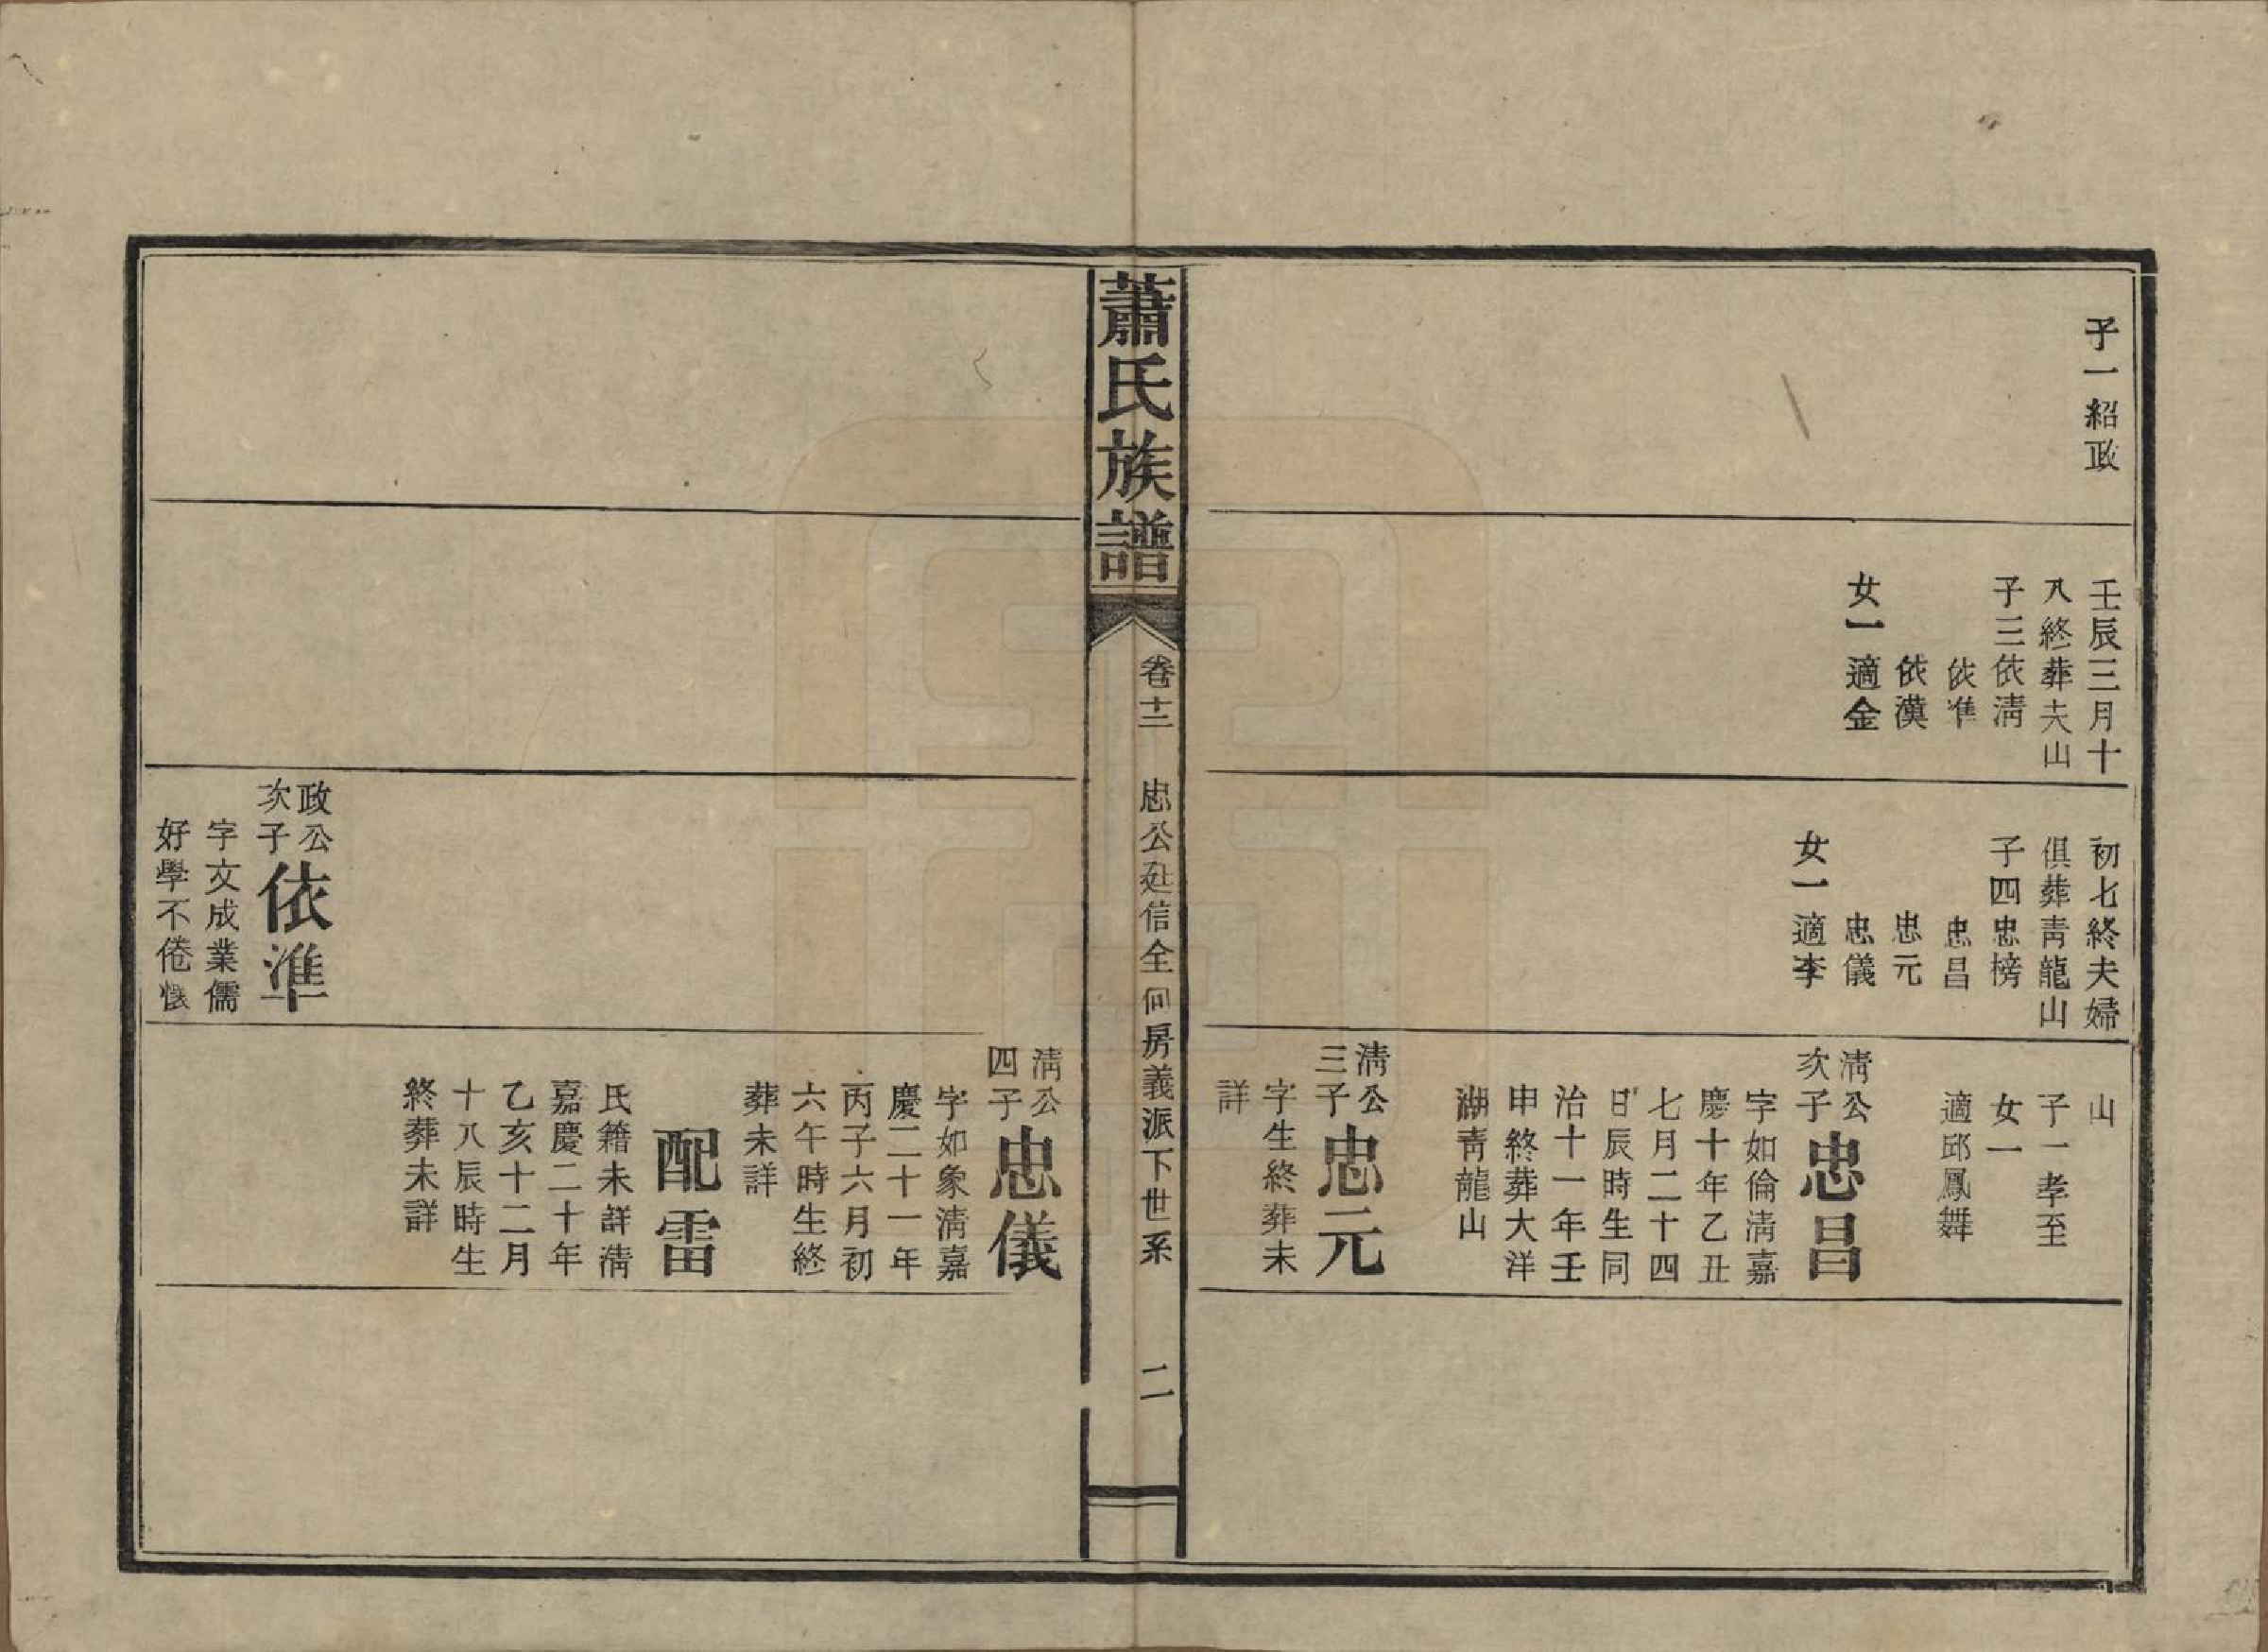 子一紹政
壬辰三月十
八終葬夫山
子三依淸
依準
依漢
女一適金
初七終夫婦
俱葬靑龍山
子四忠榜
忠昌
忠元
忠儀
女一適李
山
子一孝至
女一
適邱鳳舞
淸公
次子
忠昌
字如倫淸嘉
慶十年乙丑
七月二十四
日辰時生同
治十一年壬
申終葬大洋
湖靑龍山
淸公
三子
忠元
字生終葬未
詳
蕭氏族譜
卷十二
忠公廷信全何房義派下世系
二
淸公
四子
忠儀
字如象淸嘉
慶二十一年
丙子六月初
六午時生終
葬未詳
配雷
氏籍未詳淸
嘉慶二十年
乙亥十二月
十八辰時生
終葬未詳
政公
次子
依準
字文成業儒
好學不倦懷